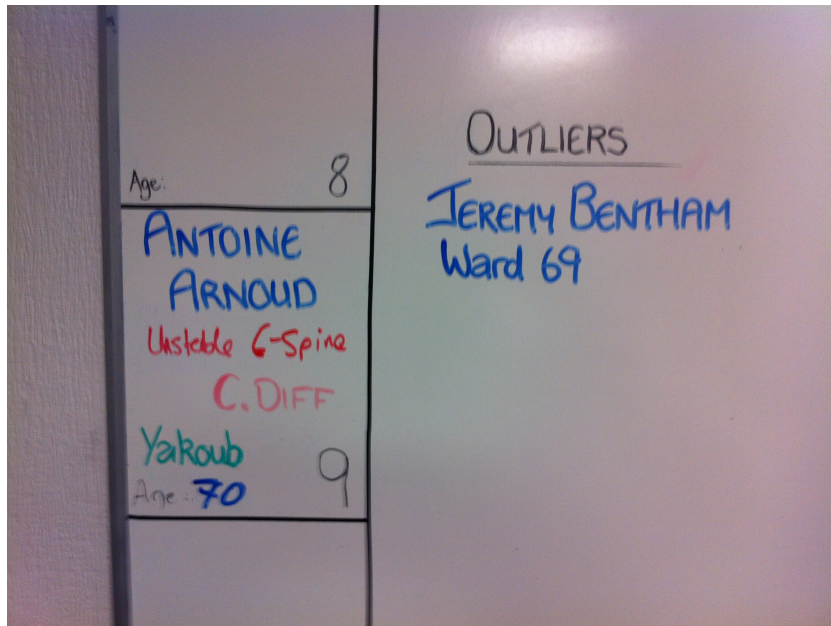 Age: 8
ANTOINE
ARNOUD
Unstable C-Spine
C. DIFF
Yakoub
Age: 70 9
OUTLIERS
JEREMY BENTHAM
Ward 69